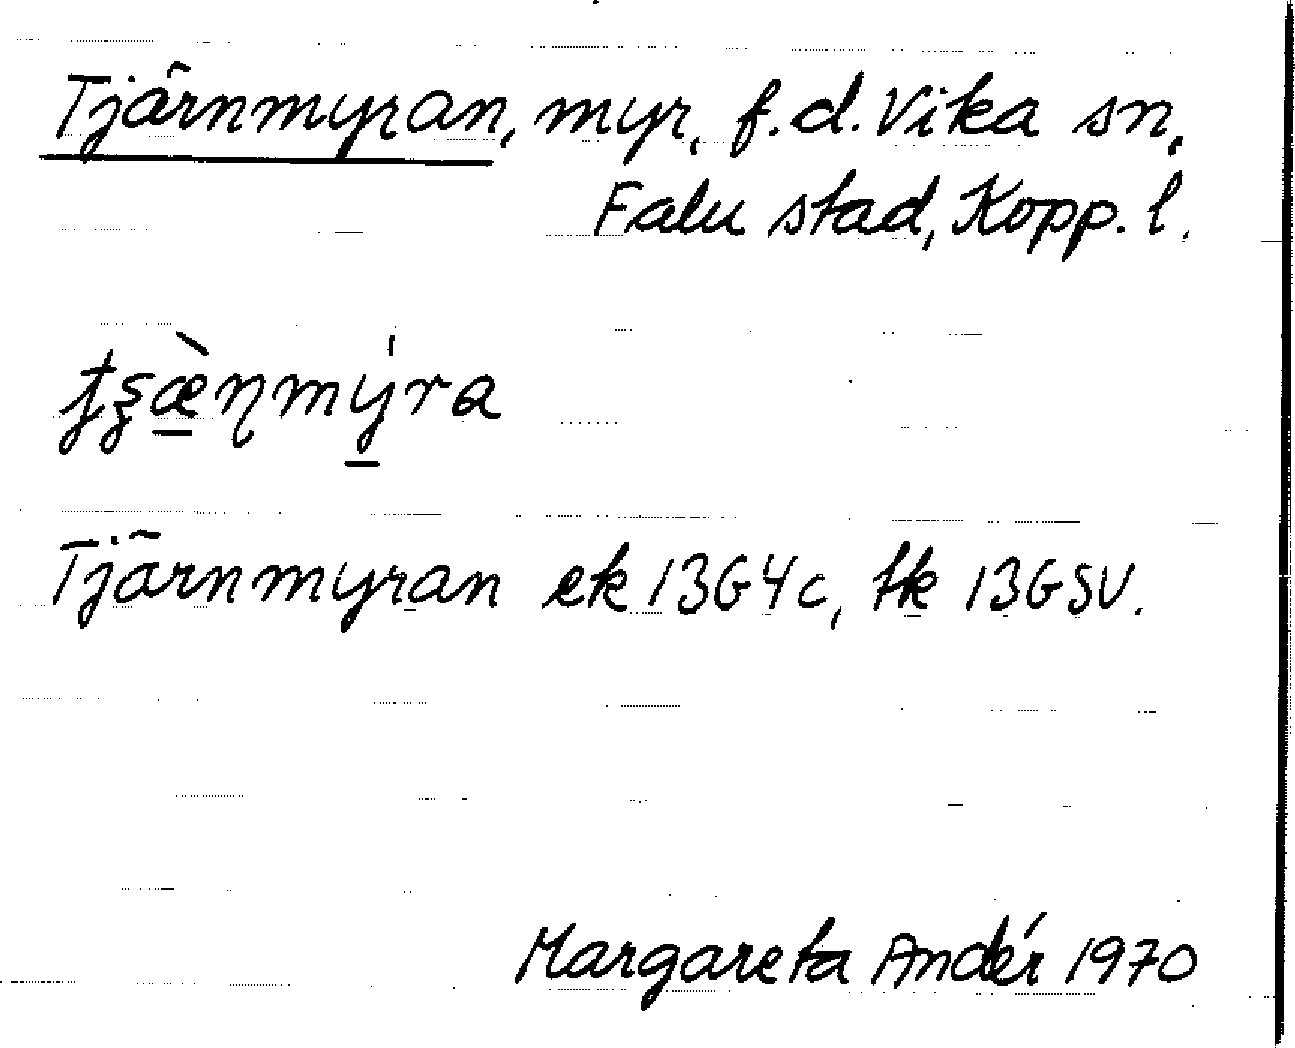 Tjärnmyran, myr, f.d. Vika sn,
Falu stad, Kopp. l.
Tjärnmyran ek 13G4c, tk 13GSV.
Margareta Andér 1970